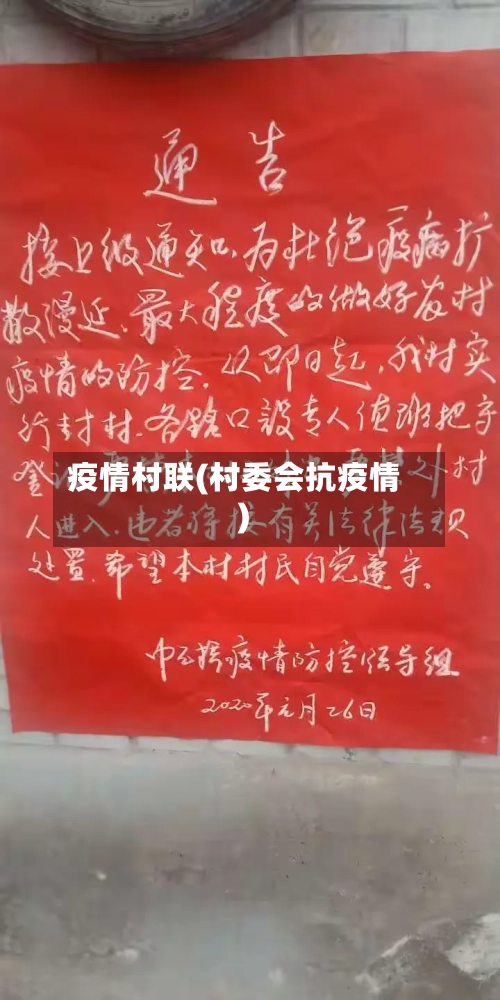 通告
接上级通知,为杜绝疫病扩
散漫延、最大程度的做好农村
疫情的防控,从即日起,我村实
行封村.各路口設专人值班把守
登
外村
疫情村联(村委会抗疫情
)
人进入,违者将按有关法律法规
处置.希望本村村民自觉遵守。
疫情防控领导组
2020年元月26日